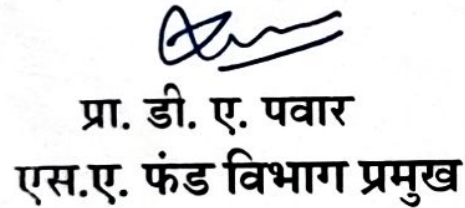 प्रा. डी. ए. पवार
एस.ए. फंड विभाग प्रमुख